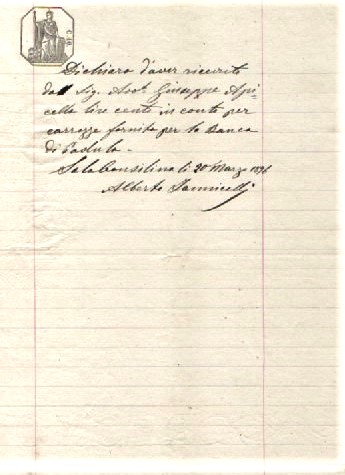 Dichiaro d'aver ricevuto
dal Sig. Avv.t Giuseppe Api=
cella lire cento in conto per
carrozze fornite per la Banca
di Padula.
Sala Consilina li 20 Marzo 189
Alberto Iannicelli